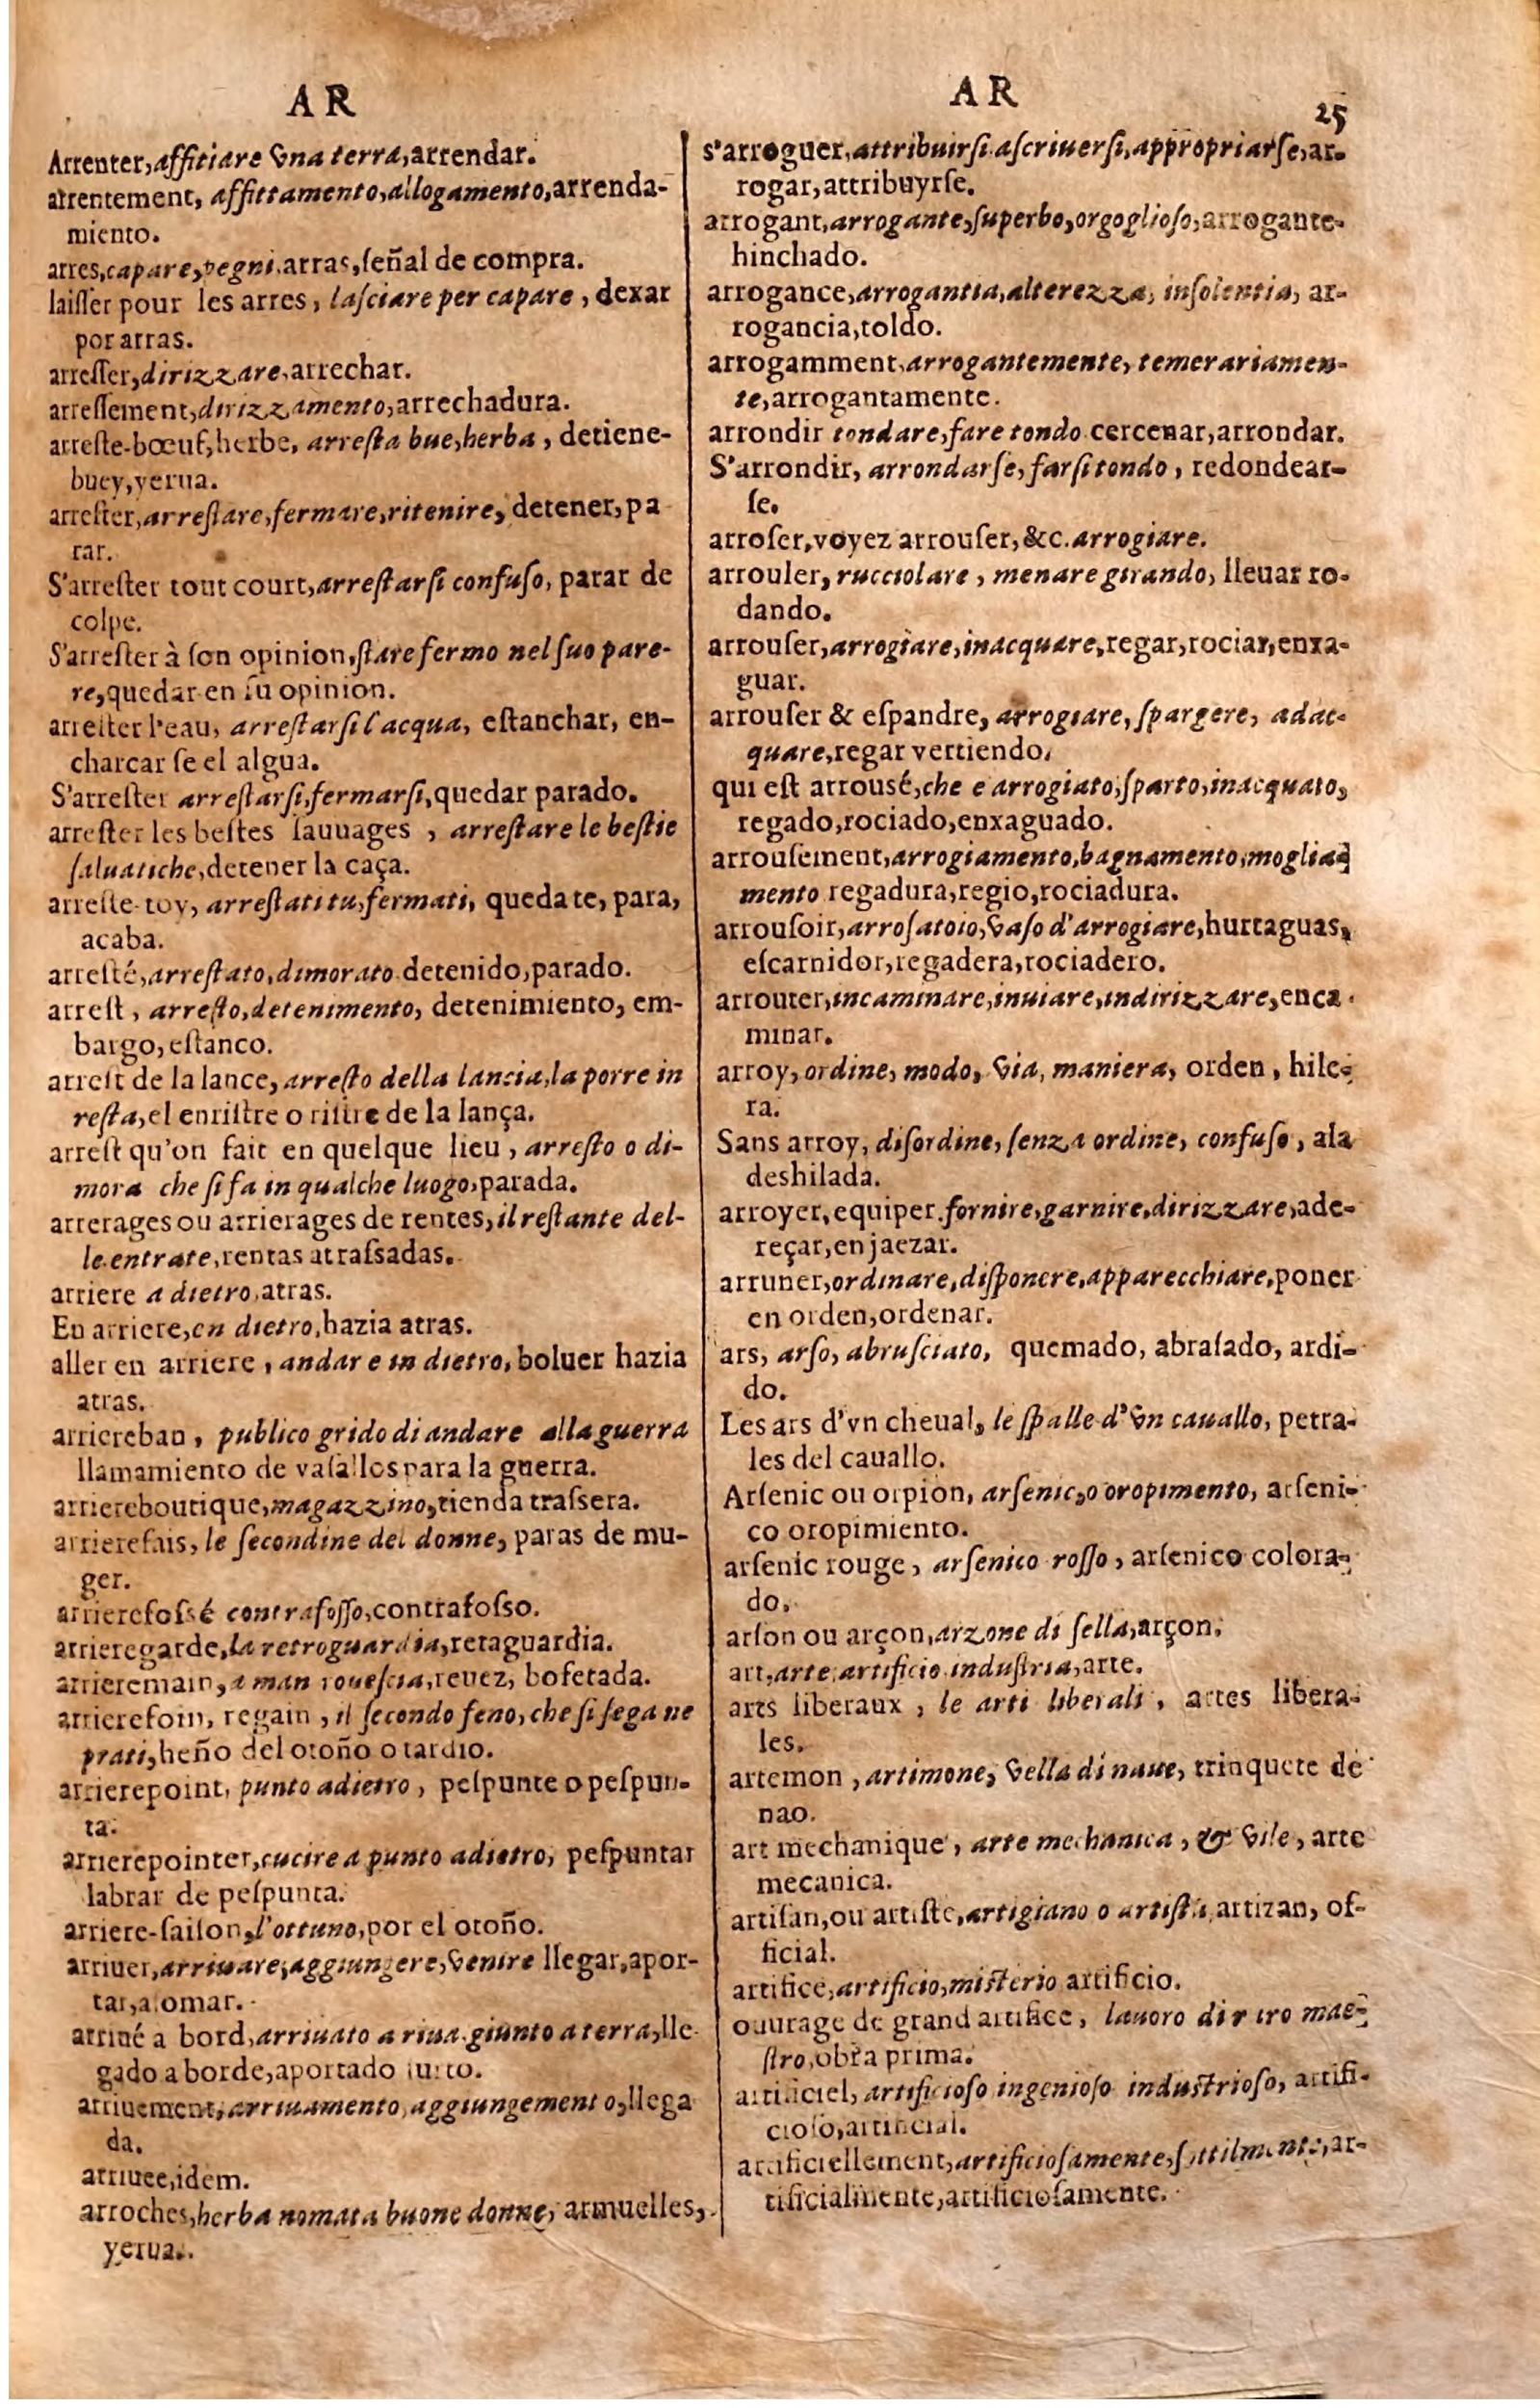 AR
Arrenter, affitiare vna terra, arrendar.
arrentement, affittamento, allogamento, arrenda-
miento.
arres, capare, pegni, arras, ſeñal de compra.
laiſſer pour les arres, laſciare per capare, dexar
por arras.
arreſſer, dirizzare, arrechar.
arreſſement, dirizzamento, arrechadura.
arreſte-bœuf, herbe, arreſta bue, herba, detiene-
buey, yerua.
arreſter, arreſtare, fermare, ritenire, detener, pa
rar.
S'arreſter tout court, arreſtarſi confuſo, parar de
colpe.
S'arreſter à ſon opinion, ſtare fermo nel ſuo pare-
re, quedar en ſu opinion.
arreſter l'eau, arreſtarſi l'acqua, eſtanchar, en-
charcar ſe el algua.
S'arreſter arreſtarſi, fermarſi, quedar parado.
arreſter les beſtes ſauuages, arreſtare le beſtie
ſaluatiche, detener la caça.
arreſte-toy, arreſtati tu, fermati, quedate, para,
acaba.
arreſté, arreſtato, dimorato detenido, parado.
arreſt, arreſto, detenimento, detenimiento, em-
bargo, eſtanco.
arreſt de la lance, arreſto della lancia, la porre in
reſta, el enriſtre o riſtre de la lança.
arreſt qu'on fait en quelque lieu, arreſto o di-
mora che ſi fa in qualche luogo, parada.
arrerages ou arrierages de rentes, il reſtante del-
le entrate, rentas atraſsadas.
arriere a dietro, atras.
En arriere, en dietro, hazia atras.
aller en arriere, andar e in dietro, boluer hazia
atras.
arriereban, publico grido di andare alla guerra
llamamiento de vaſallos para la guerra.
arriereboutique, magazzino, tienda traſsera.
arrierefais, le ſecondine del donne, paras de mu-
ger.
arrierefoſsé contrafoſſo, contrafoſso.
arrieregarde, la retroguardia, retaguardia.
arrieremain, a man roueſcia, reuez, bofetada.
arrierefoin, regain, il ſecondo feno, che ſi ſega ne
prati, heño del otoño o tardio.
arrierepoint, punto adietro, peſpunte o peſpun-
ta.
arrierepointer, cucire a punto adietro, peſpuntar
labrar de peſpunta.
arriere-ſaiſon, l'ottuno, por el otoño.
arriuer, arriuare, aggiungere, venire llegar, apor-
tar, aſomar.
arriué a bord, arriuato a riua, giunto a terra, lle-
gado a borde, aportado
arriuement, arriuamento, aggiungemento, llega
da.
arriuee, idem.
arroches, herba nomata buone donne, armuelles,
yerua.
AR
25
s'arroguer, attribuirſi aſcriuerſi, appropriarſe, ar-
rogar, attribuyrſe.
arrogant, arrogante, ſuperbo, orgoglioſo, arrogante
hinchado.
arrogance, arrogantia, alterezza, inſolentia, ar-
rogancia, toldo.
arrogamment, arrogantemente, temerariamen-
te, arrogantamente.
arrondir tondare, fare tondo cercenar, arrondar.
S'arrondir, arrondarſe, farſi tondo, redondear-
ſe.
arroſer, voyez arrouſer, &c. arrogiare.
arrouler, rucciolare, menare girando, lleuar ro-
dando.
arrouſer, arrogiare, inacquare, regar, rociar, enxa-
guar.
arrouſer & eſpandre, arrogiare, ſpargere, adac-
quare, regar vertiendo.
qui eſt arrousé, che e arrogiato, ſparto, inacquato,
regado, rociado, enxaguado.
arrouſement, arrogiamento, bagnamento, moglia-
mento regadura, regio, rociadura.
arrouſoir, arroſatoio, vaſo d'arrogiare, hurtaguas,
eſcarnidor, regadera, rociadero.
arrouter, incaminare, inuiare, indirizzare, enca-
minar.
arroy, ordine, modo, via, maniera, orden, hile-
ra.
Sans arroy, diſordine, ſenza ordine, confuſo, ala
deshilada.
arroyer, equiper. fornire, garnire, dirizzare, ade-
reçar, enjaezar.
arruner, ordinare, diſponere, apparecchiare, poner
en orden, ordenar.
ars, arſo, abruſciato, quemado, abraſado, ardi-
do.
Les ars d'vn cheual, le ſpalle d'vn cauallo, petra-
les del cauallo.
Arſenic ou orpion, arſenic, o oropimento, arſeni-
co oropimiento.
arſenic rouge, arſenico roſſo, arſenico colora-
do.
arſon ou arçon, arzone di ſella, arçon.
art, arte, artificio induſtria, arte.
arts liberaux, le arti liberali, artes libera-
les.
artemon, artimone, vella di naue, trinquete de
nao.
art mechanique, arte mechanica, & vile, arte
mecanica.
artiſan, ou artiſte, artigiano o artiſta, artizan, of-
ficial.
artifice, artificio, miſterio artificio.
ouurage de grand artifice, lauoro di mae-
ſtro, obra prima.
artificiel, artificioſo ingenioſo induſtrioſo, artifi-
cioſo, artificial.
artificiellement, artificioſamente, ſottilmente, ar-
tificialmente, artificioſamente.